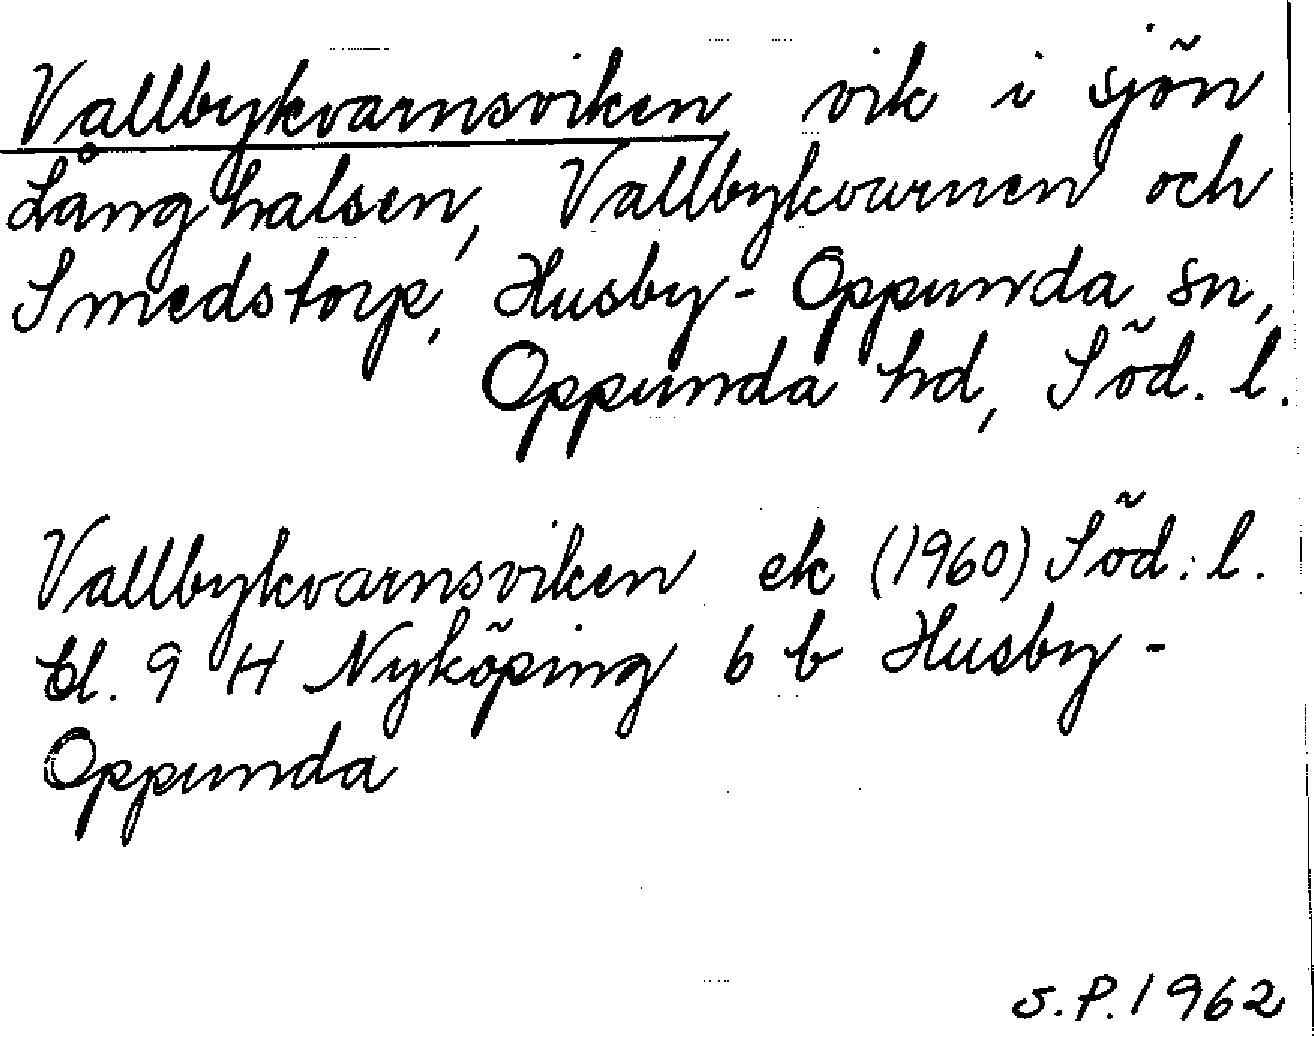 Vallbykvarnsviken vik i sjön
Långhalsen, Vallbykvarnen och
Smedstorp, Husby-Oppunda sn,
Oppunda hd, Söd. l.
Vallbykvarnsviken ek (1960) Söd. l.
bl. 9 H Nyköping 6 b Husby-
Oppunda
S.P. 1962